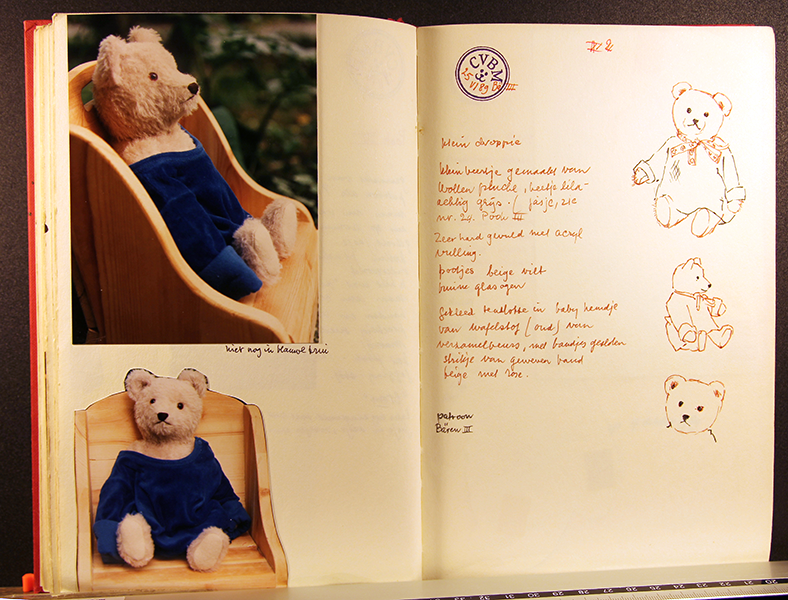 hier nog in blauwe trui
III 2
CVBM
25 VI 89
III
klein droppie
klein beertje gemaakt van
wollen pluche, beetje lila-
achtig grijs. (jasje, zie
nr. 24. Pooh III
Zeer hard gevuld met acryl
vulling.
pootjes beige vilt
bruine glasogen
gekleed in baby hemdje
van wafelstof (oud) van
verzamelbeurs, met bandjes gesloten
strikje van geweven band
beige met rose.
patroon
Bären III
32 31 30 29 28 27 26 25 24 23 22 21 20